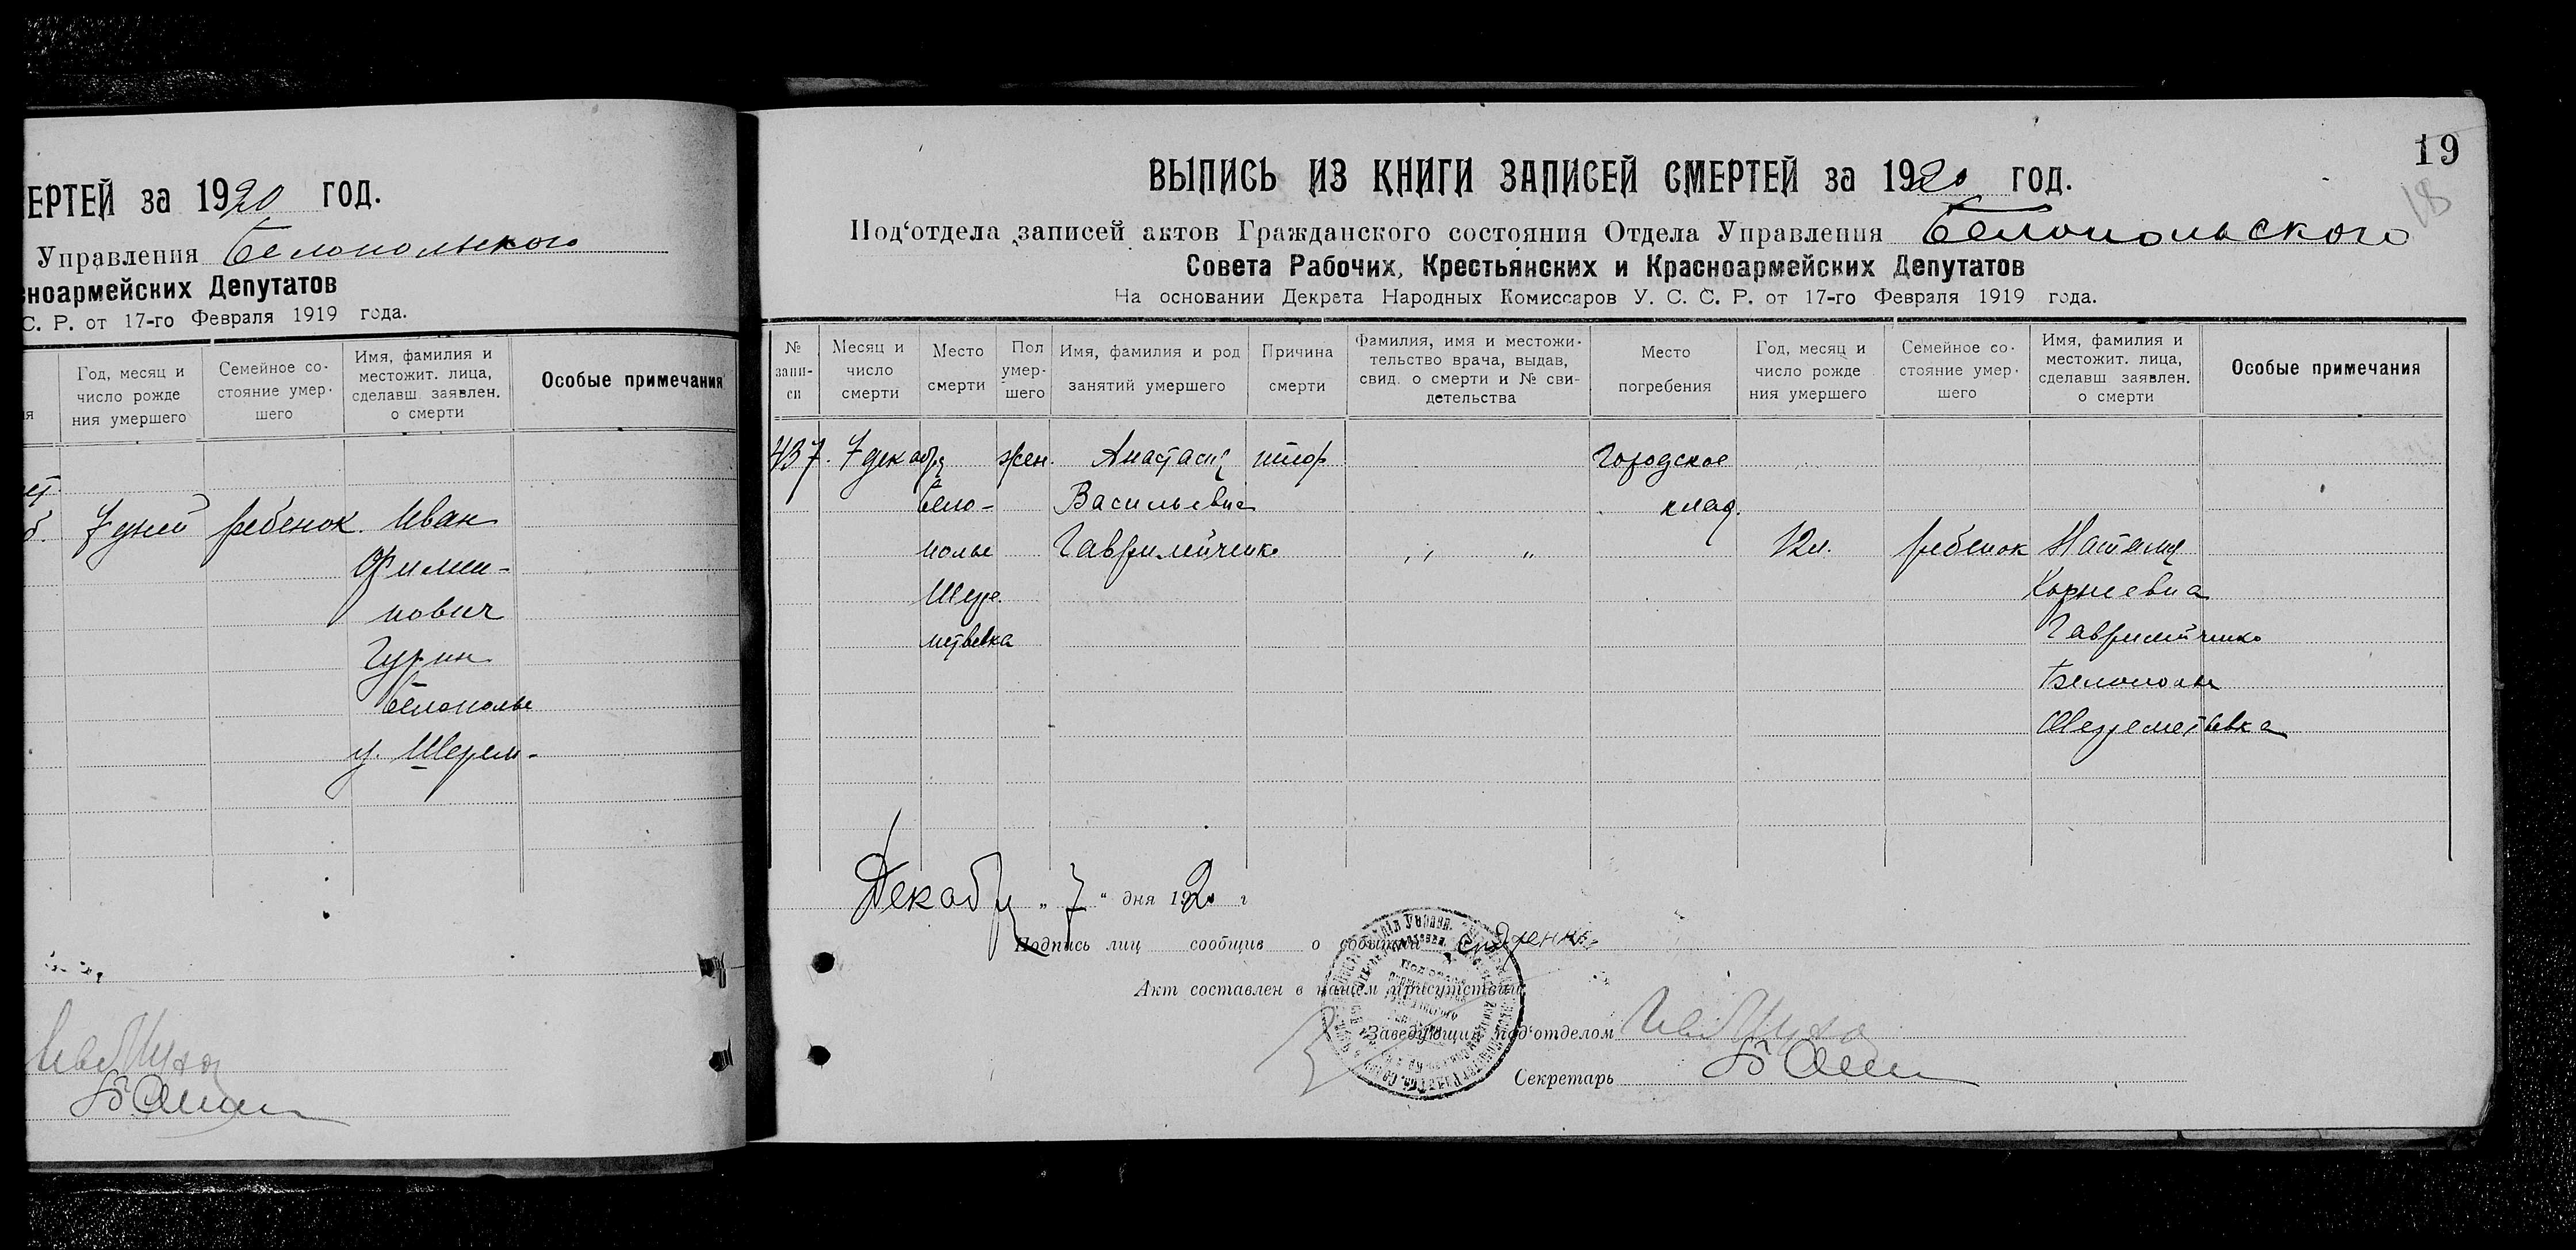 ЕРТЕЙ за 1920 ГОД.
Управления Белопольского
сноармейских Депутатов
С. Р. от 17-го Февраля 1919 года.
Год, месяц и
число рожде
ния умершего
Семейное со-
стояние умер-
шего
Имя, фамилия и
местожит. лица,
сделавш. заявлен.
о смерти
Особые примечания
7 дней ребенок Иван
Филип-
пович
Гурин
Белополье
у. Шерем-
19
18
ВЫПИСЬ ИЗ КНИГИ ЗАПИСЕЙ СМЕРТЕЙ за 1920 ГОД.
Под'отдела записей актов Гражданского состояния Отдела Управления Белопольского
Совета Рабочих, Крестьянских и Красноармейских Депутатов
На основании Декрета Народных Комиссаров У. С. С. Р. от 17-го Февраля 1919 года.
№
запи-
си
Месяц и
число
смерти
Место
смерти
Пол
умер-
шего
Имя, фамилия и род
занятий умершего
Причина
смерти
Фамилия, имя и местожи-
тельство врача, выдав,
свид. о смерти и № сви-
детельства
Место
погребения
Год, месяц и
число рожде
ния умершего
Семейное со-
стояние умер-
шего
Имя, фамилия и
местожит. лица,
сделавш заявлен.
о смерти
Особые примечания
437. 7 декабря жен. Анастасия Городское
Бело- Васильевна клад.
полье Гаврилейченко " " 12 л. ребенок Наталия
Шере Корнеевна
метьевка Гаврилейченко
Белополье
Шереметьевка
Декабря „ 7 " дня 1920 г
Подпись лиц сообщив о событии
Акт составлен в нашем присутствии
Заведующий под'отделом
Секретарь